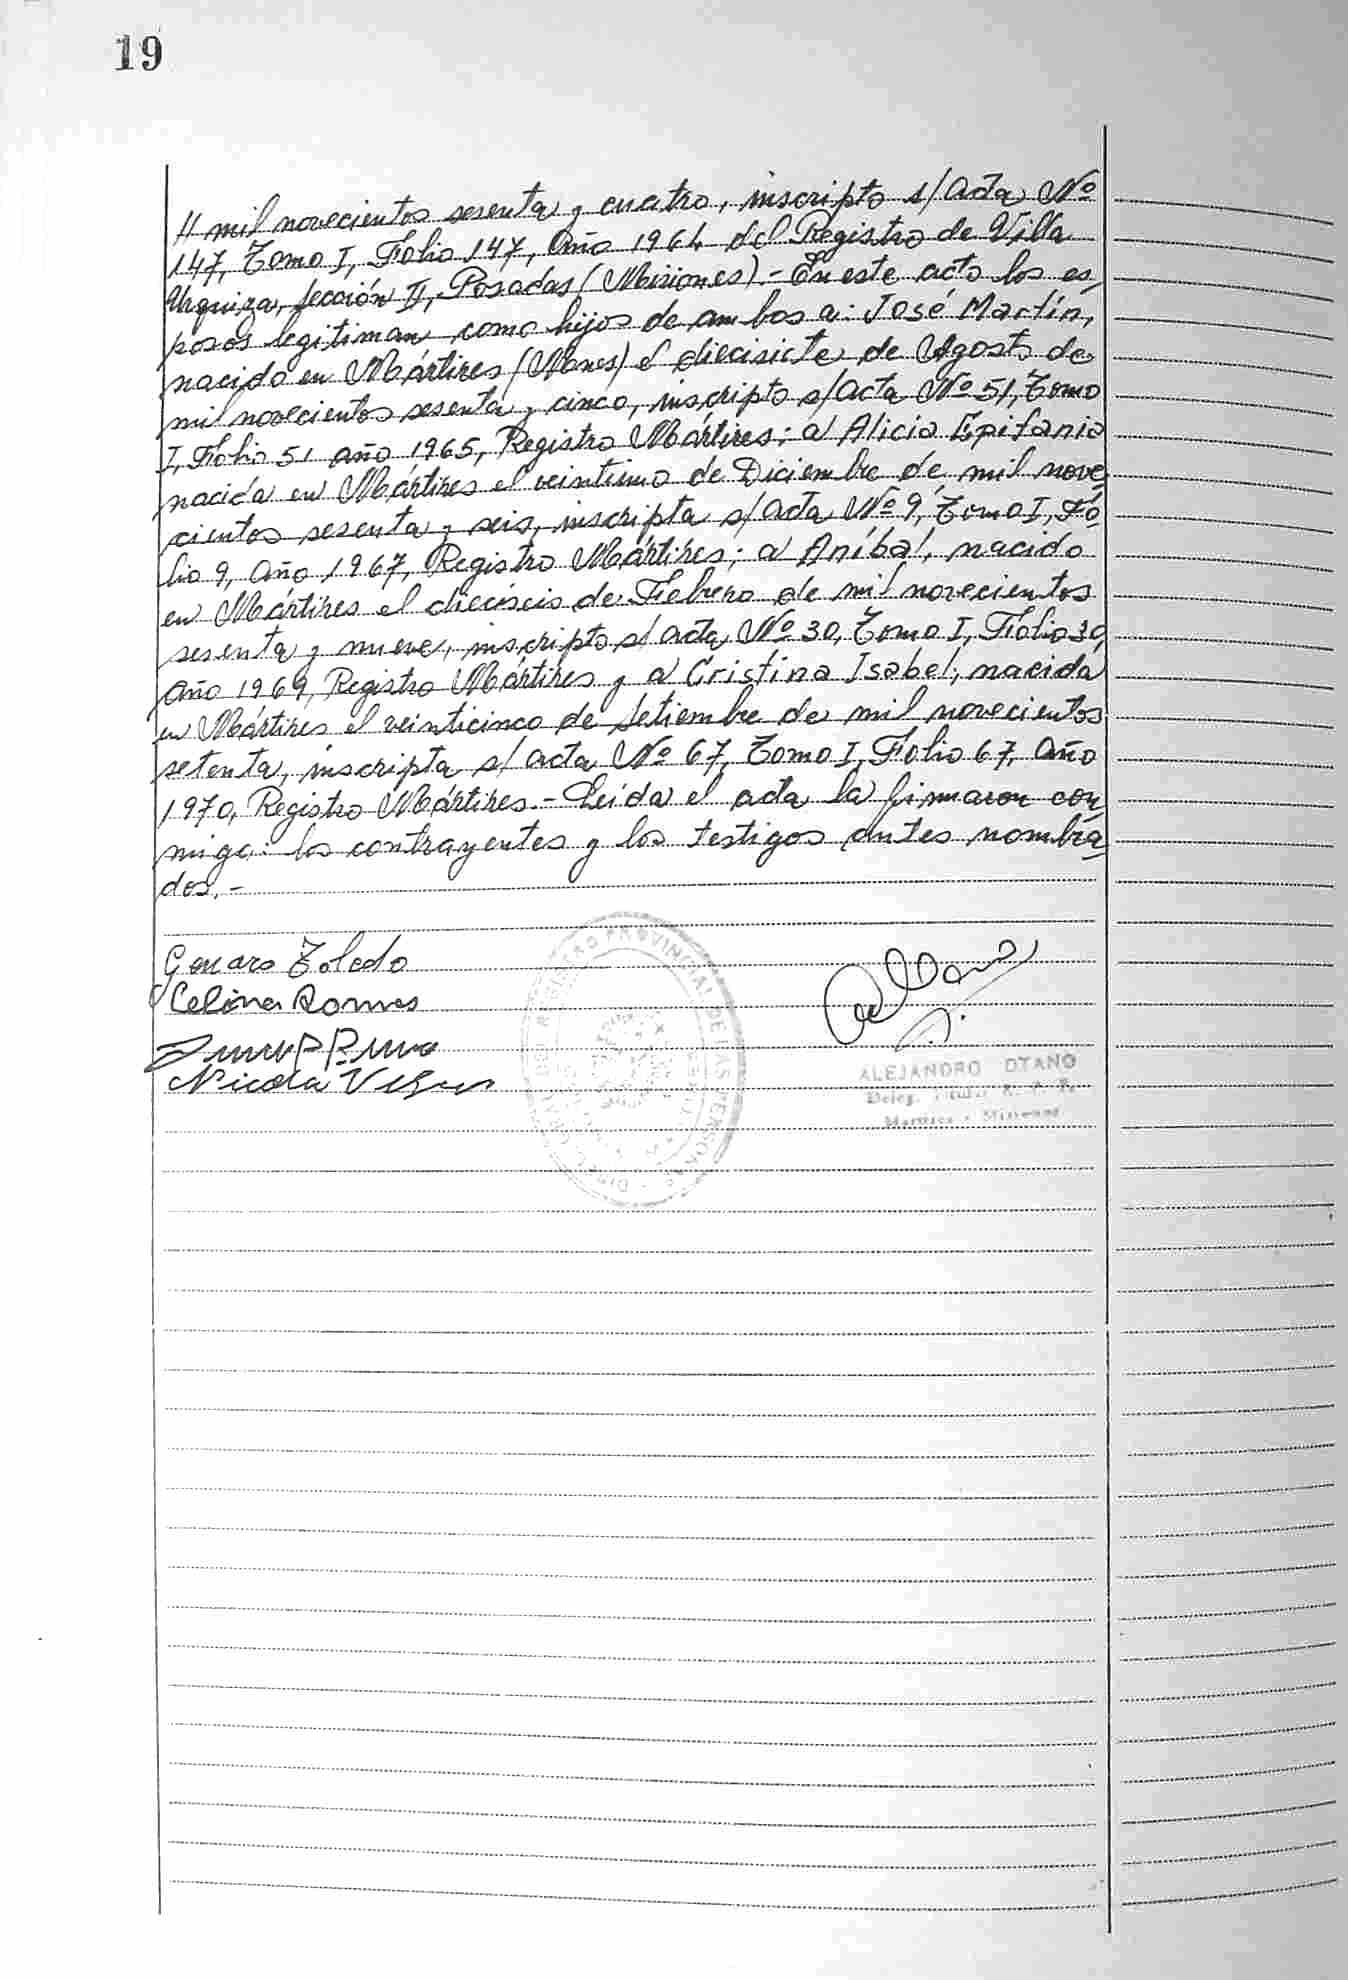 19
// mil novecientos sesenta y cuatro, inscripto s/ acta Nº
147, Tomo I, Folio 147, Año 1964 del Registro de Villa
Urquiza, Sección II, Posadas (Misiones).- En este acto los es
posos legitiman como hijos de ambos a: José Martín,
nacido en Mártires (Mnes) el diecisiete de Agosto de
mil novecientos sesenta y cinco, inscripto s/ acta Nº 51, Tomo
I, Folio 51 año 1965, Registro Mártires; a Alicia Epifania
nacida en Mártires el veintiuno de Diciembre de mil nove
cientos sesenta y seis, inscripta s/ acta Nº 9, Tomo I, Fo
lio 9, año 1967, Registro Mártires; a Aníbal, nacido
en Mártires el dieciseis de Febrero de mil novecientos
sesenta y nueve, inscripto s/ acta Nº 30, Tomo I, Folio 30
año 1969, Registro Mártires y a Cristina Isabel, nacida
en Mártires el veinticinco de Setiembre de mil novecientos
setenta, inscripta s/ acta Nº 67, Tomo I, Folio 67, año
1970, Registro Mártires.- Leída el acta la firmaron con
migo: los contrayentes y los testigos antes nombra
dos.-
Genaro Toledo
Celina Ramos
Nicola
REGISTRO PROVINCIAL DE LAS PERSONAS
ALEJANDRO OTANO
Deleg. Titular R. P. P.
Martires - Misiones